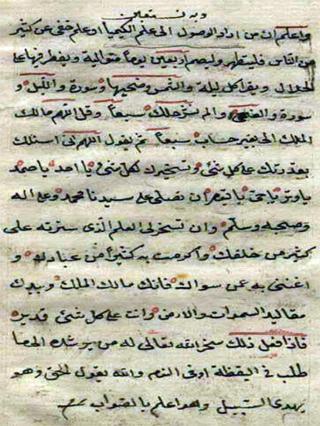 وبه نستعين
واعلم ان من اراد الوصول الى علم الكيميا او علم خفى عن كثير
من الناس فليتطهر وليصم اربعين يوما متوالية ويفطر فيها على
الحلال ويقرا كل ليلة والشمس وضحيها وسورة والليل و
سورة والضحى والم نشرح لك سبعا وقل اللهم مالك
الملك الى بغير حساب سبعا ثم يقول اللهم انى اسئلك
بقدرتك على كل شئ وتسخيرك لكل شئ يا احد يا صمد
يا وتر يا حى يا قيوم ان تصلى على سيدنا محمد وعلى اله
وصحبه وسلم وان تسخر لى العلم الذى سترته على
كثير من خلقك واكرمت به كثيرا من عبادك و
اغننى به عن سواك فانك مالك الملك وبيدك
مقاليد السموات والارض وانت على كل شئ قدير
فاذا فعل ذلك سخر الله تعالى له من يرشده الى ما
طلب فى اليقظة او فى النوم والله يقول الحق وهو
يهدى السبيل والله اعلم بالصواب